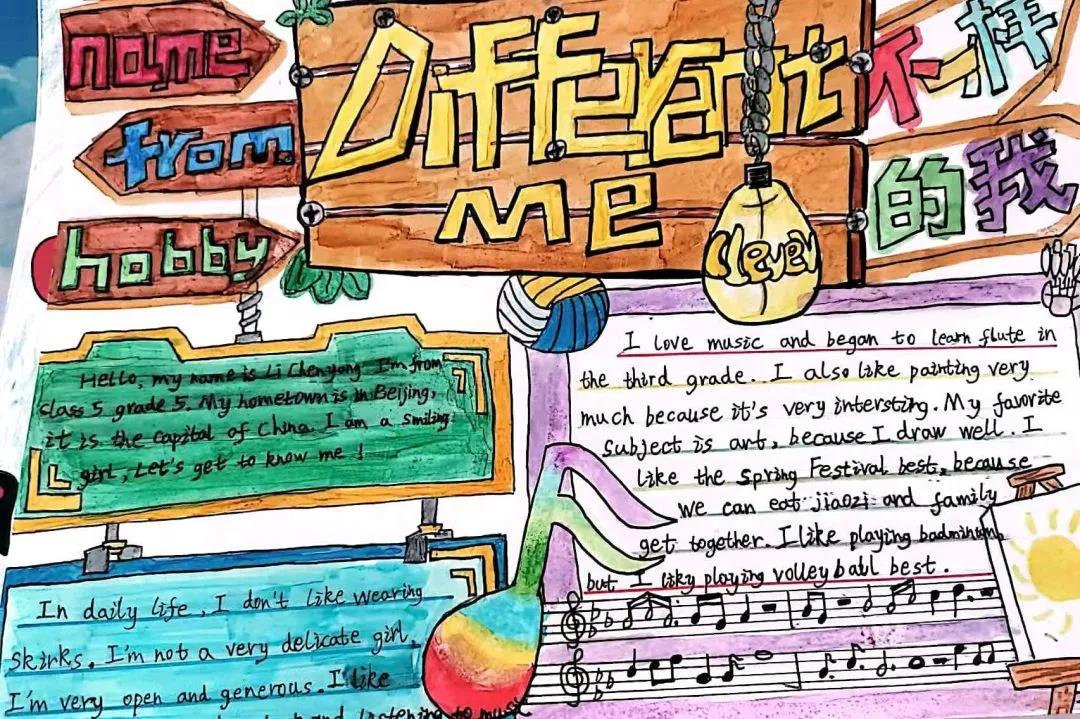 name
from.
hobby
Different
me
clever
不一样
的我
Hello, my name is Li Chenyang I'm from
class 5 grade 5. My hometown is in Beijing,
it is the capital of China. I am a smiling
girl, Let's get to know me!
In daily life, I don't like wearing
Skirks. I'm not a very delicate girl.
I'm very open and generous. I like
and listening to music
I love music and began to learn flute in
the third grade. I also like painting very
much because it's very intersting. My favorite
Subject is art, because I draw well. I
like the Spring Festival best, because
We can eat jiaozi and family
get together. I like playing badminton,
but I liky playing volley ball best.